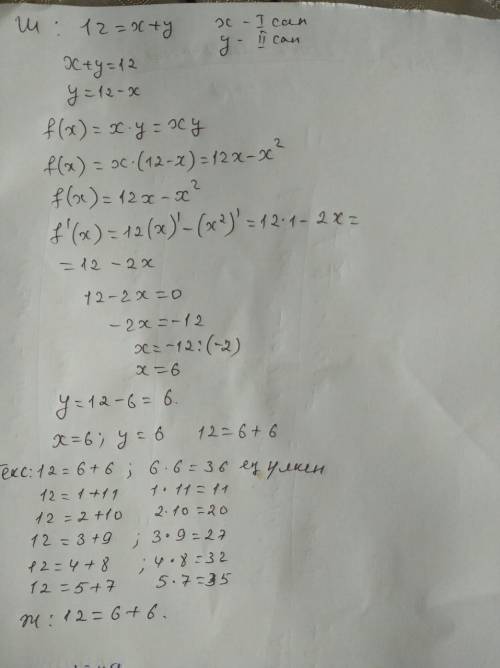 Ш: 12=x+y x - I сан
y - II сан
x+y=12
y=12-x
f(x)=x·y=xy
f(x)=x·(12-x)=12x-x²
f(x)=12x-x²
f'(x)=12(x)'-(x²)'=12·1-2x=
=12-2x
12-2x=0
-2x=-12
x=-12:(-2)
x=6
y=12-6=6.
x=6; y=6 12=6+6
Текс: 12=6+6; 6·6=36 ең үлкен
12=1+11 1·11=11
12=2+10 2·10=20
12=3+9 ; 3·9=27
12=4+8 ; 4·8=32
12=5+7 5·7=35
Ж: 12=6+6.